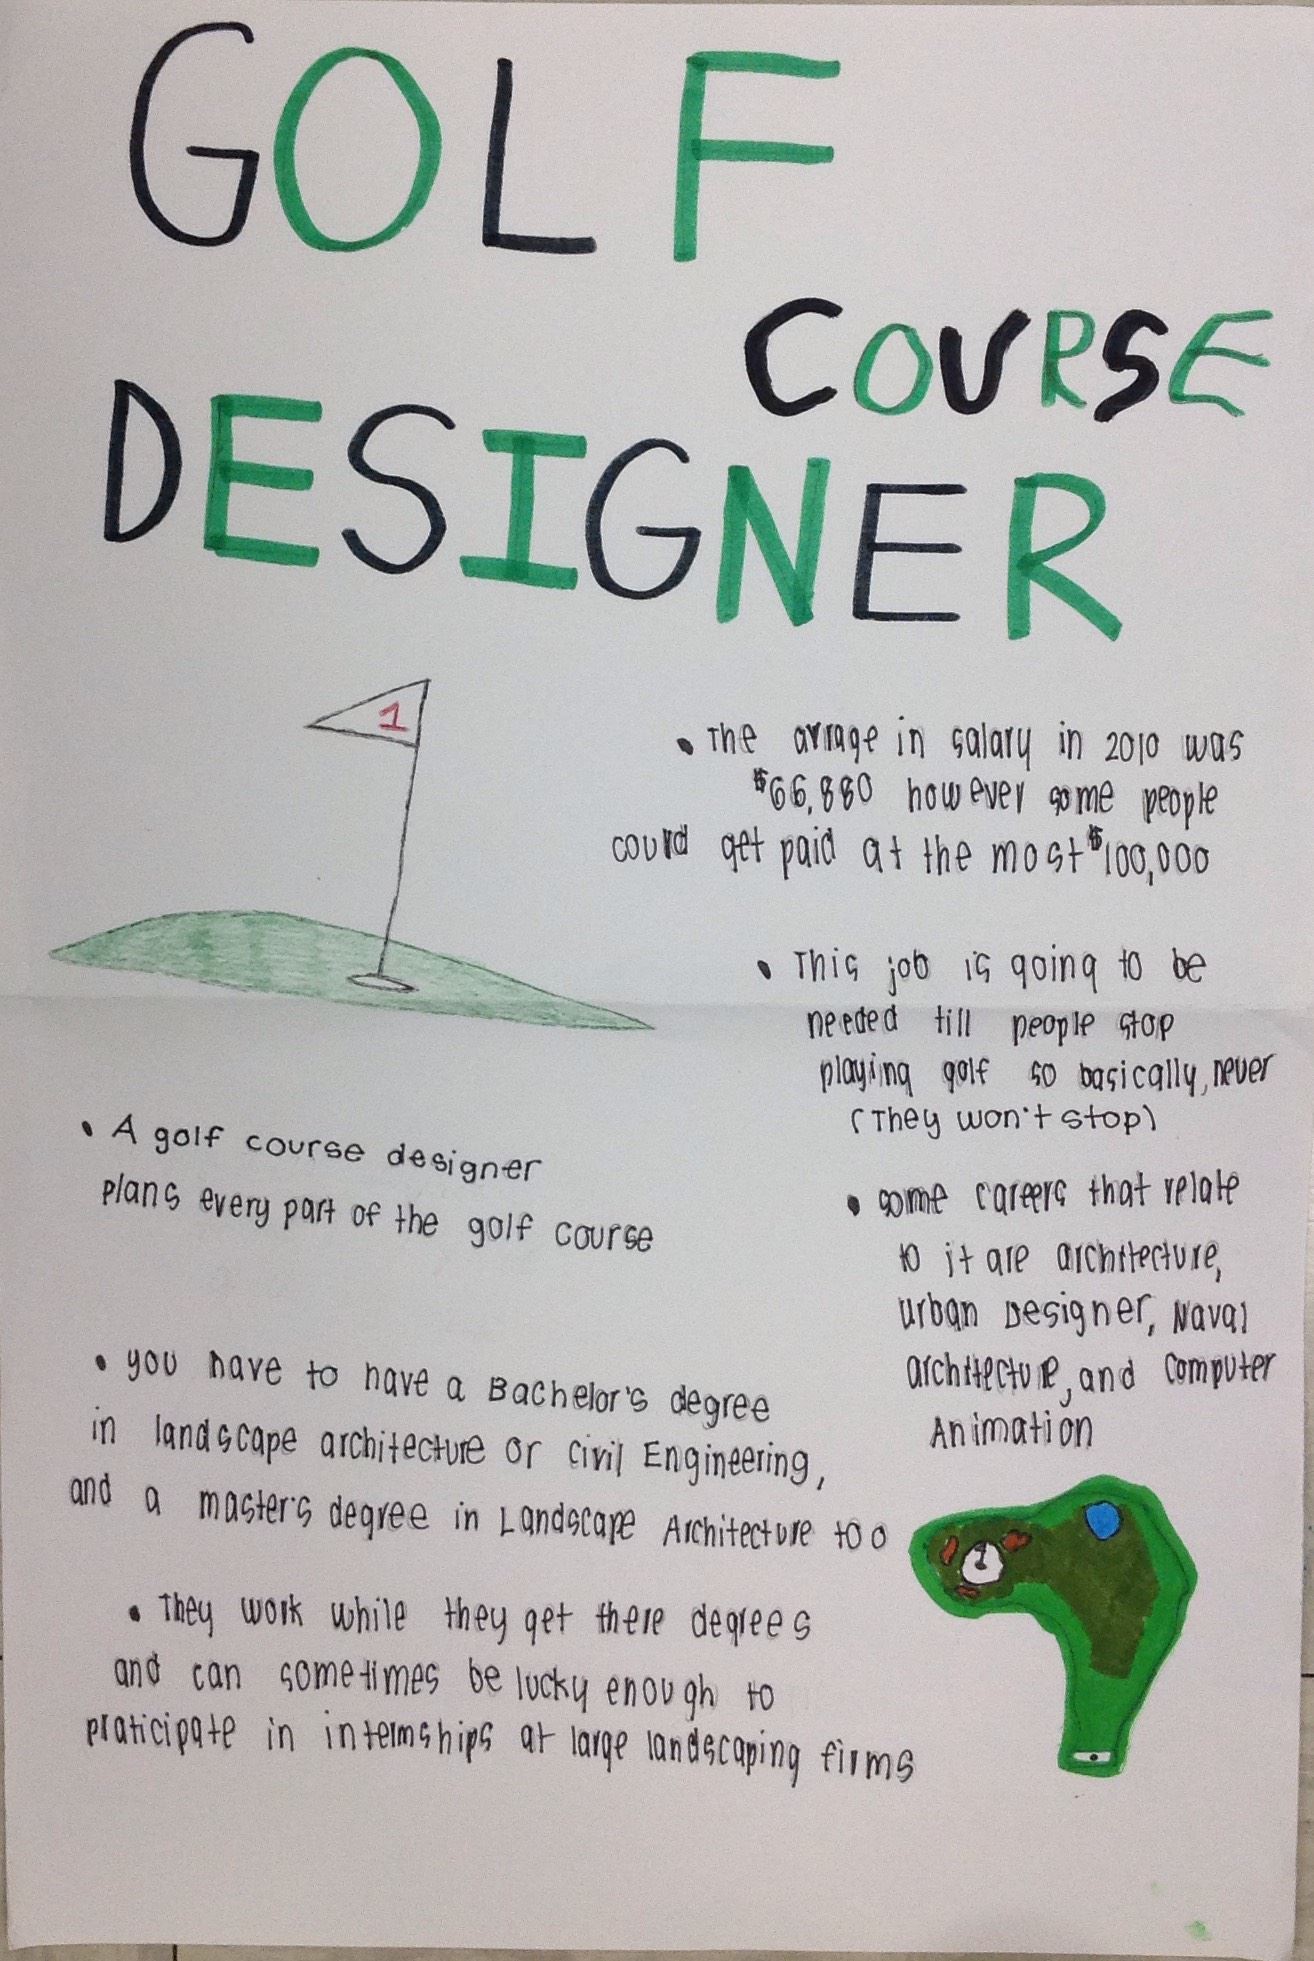 GOLF
COURSE
DESIGNER
1
• The avrage in salary in 2010 was
$66,880 however some people
could get paid at the most $100,000
• This job is going to be
needed till people stop
playing golf so basically, never
(They won't stop)
• A golf course designer
plans every part of the golf course
• some careers that relate
to it are architecture,
urban Designer, Naval
architecture, and computer
Animation
• you have to have a Bachelor's degree
in landscape architecture or civil Engineering,
and a master's degree in Landscape Architecture too
1
• They work while they get there degrees
and can sometimes be lucky enough to
praticipate in internships at large landscaping firms